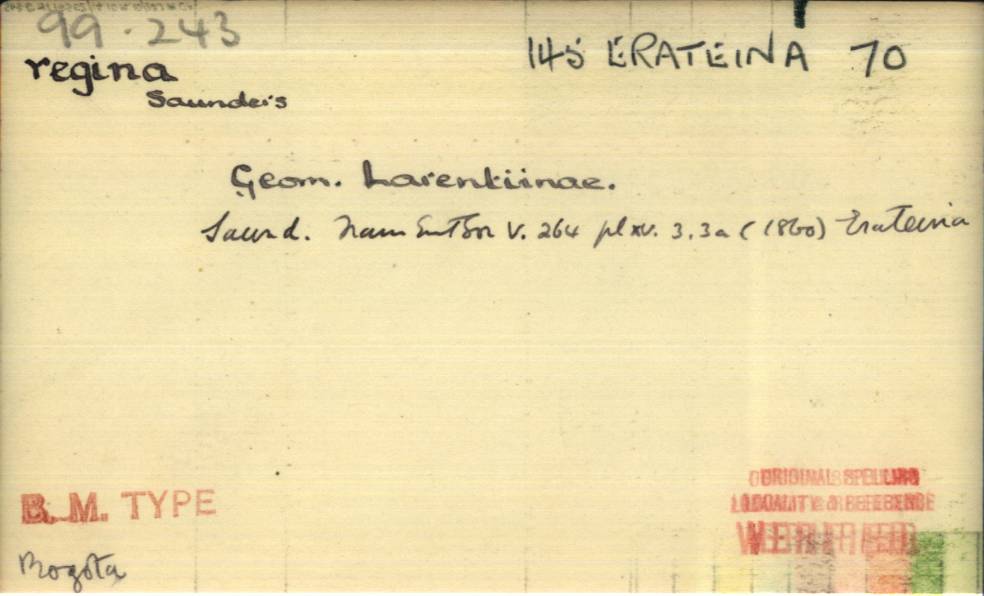 99.243
regina
Saunders
145 ERATEINA 70
Geom. Larentiinae.
Saund. Tram Ent Soc V. 264 pl xv. 3.3a (1860) Erateina
B. M. TYPE
ORIGINAL SPELLING
LOCALITY & REFERENCE
VERIFIED
Bogota